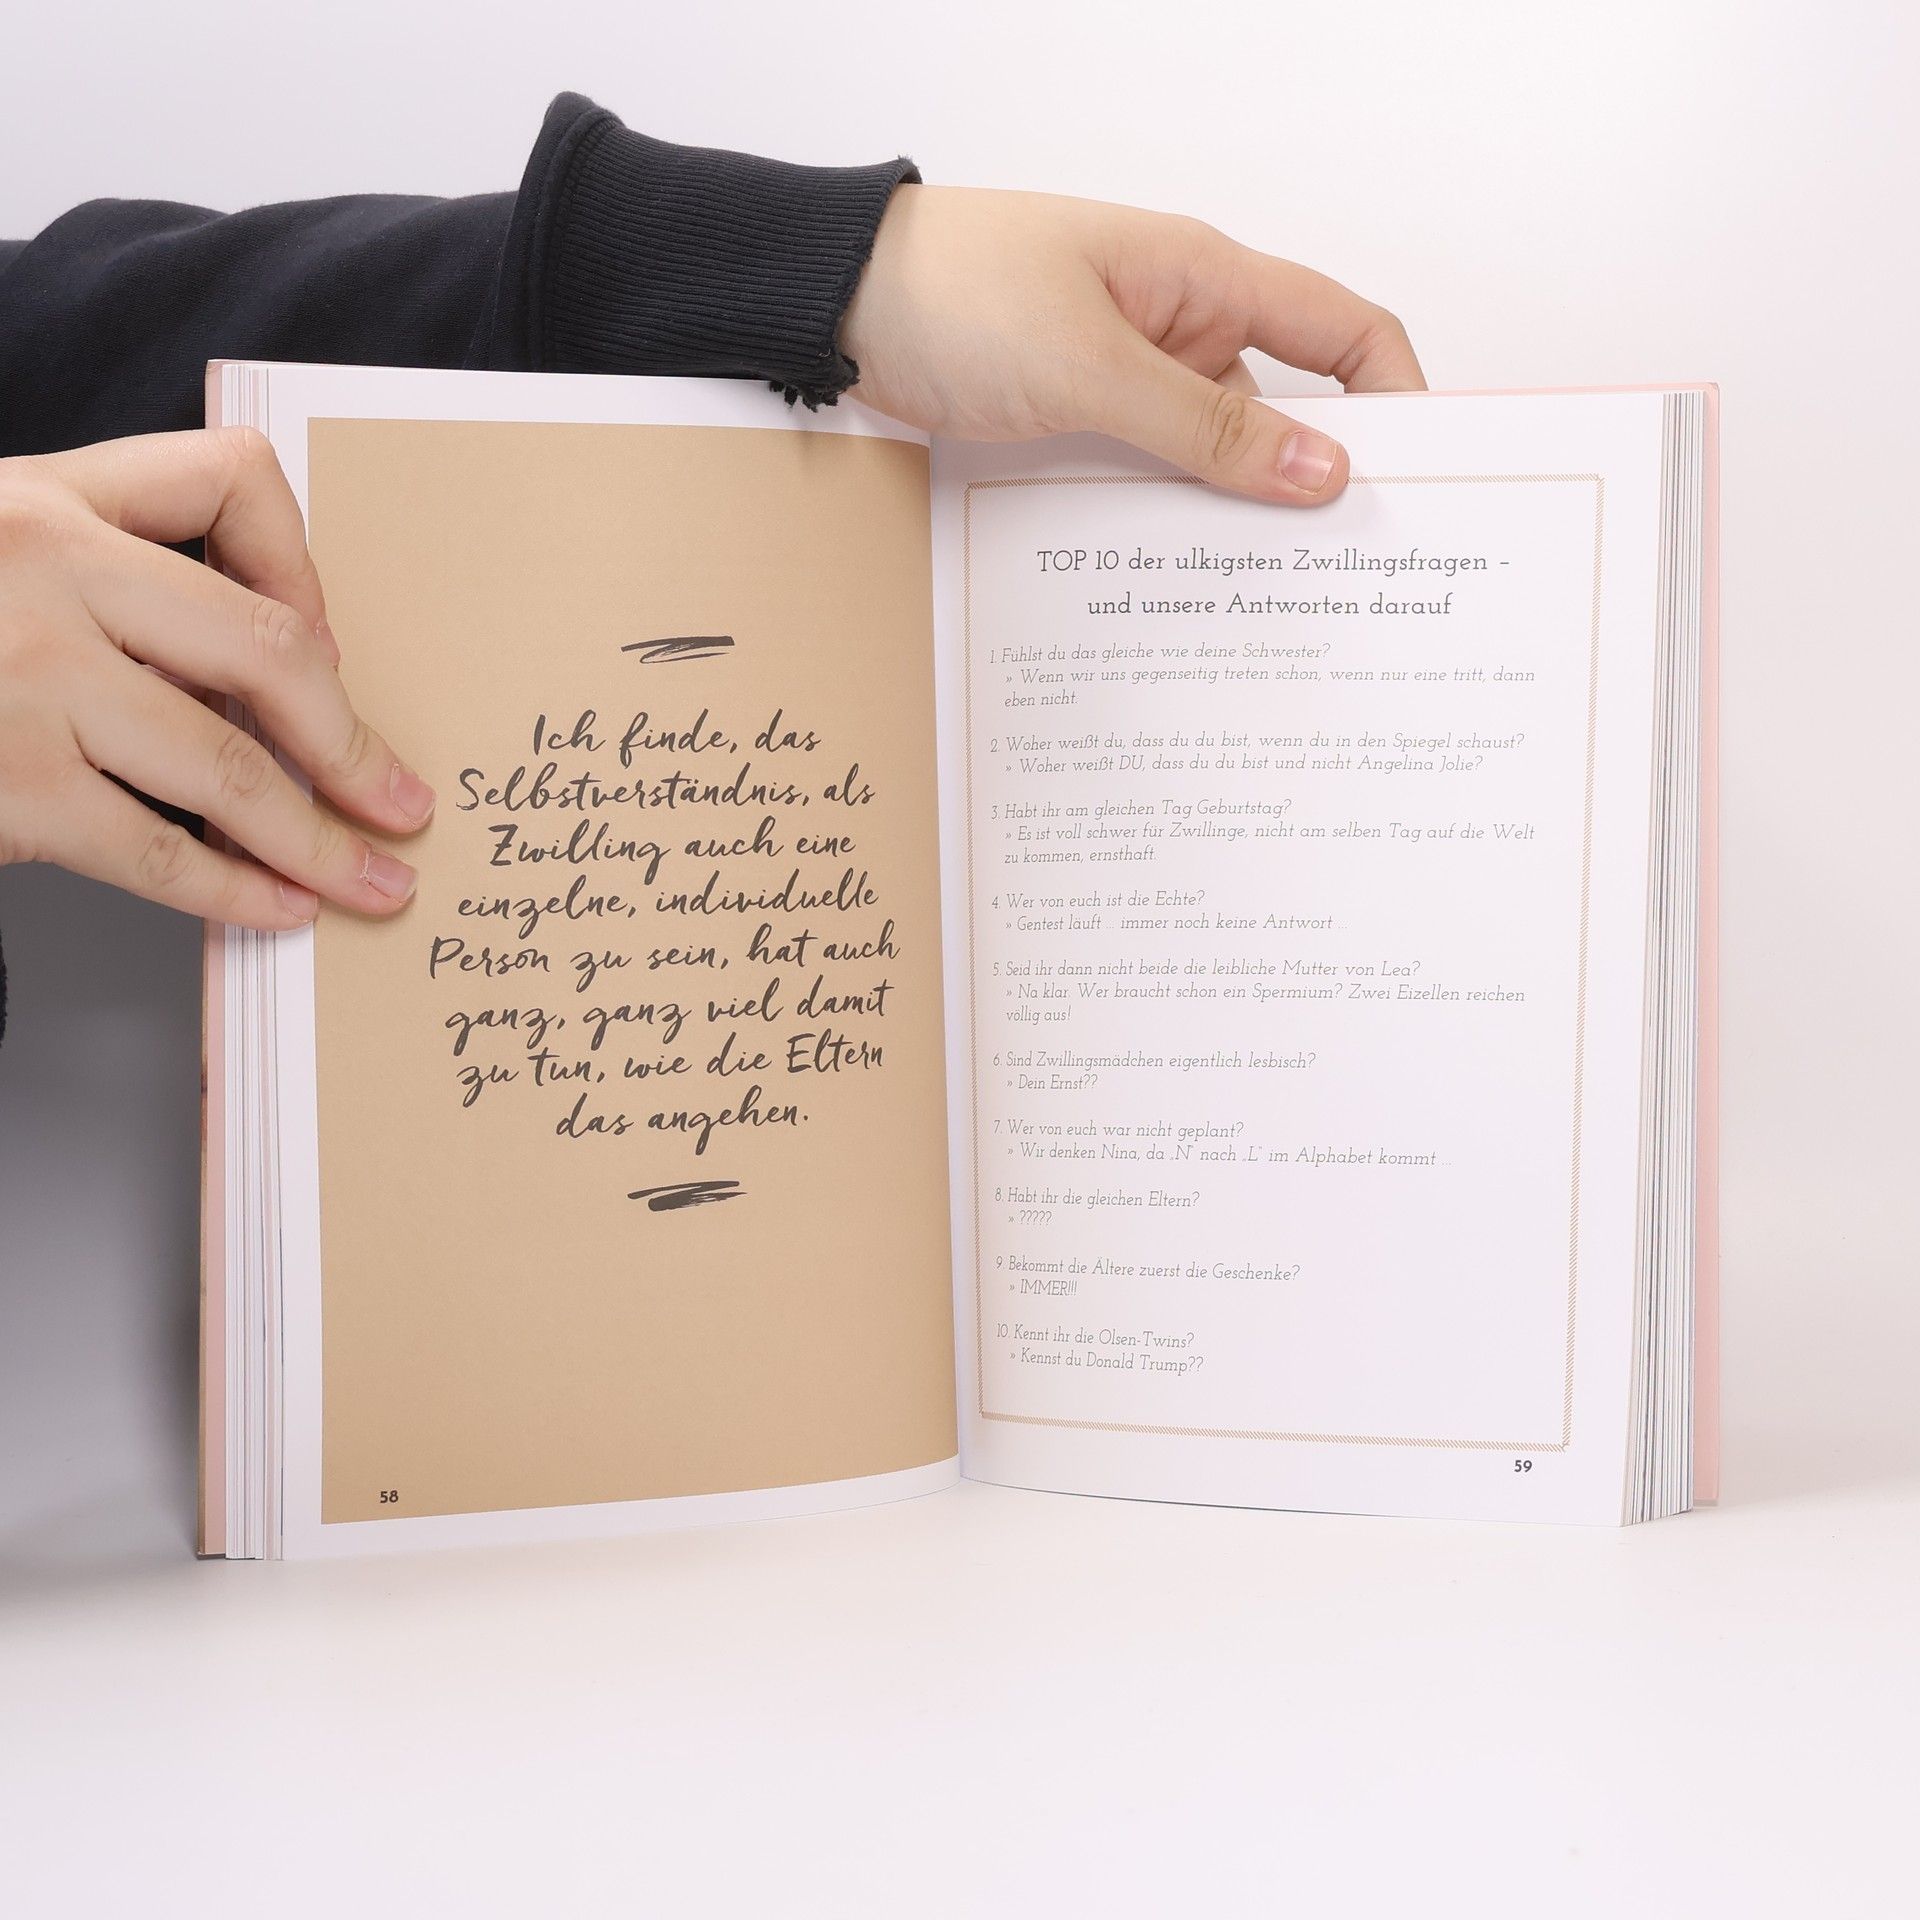 Ich finde, das
Selbstverständnis, als
Zwilling auch eine
einzelne, individuelle
Person zu sein, hat auch
ganz, ganz viel damit
zu tun, wie die Eltern
das angehen.
58
TOP 10 der ulkigsten Zwillingsfragen –
und unsere Antworten darauf
1. Fühlst du das gleiche wie deine Schwester?
» Wenn wir uns gegenseitig treten schon, wenn nur eine tritt, dann
eben nicht.
2. Woher weißt du, dass du du bist, wenn du in den Spiegel schaust?
» Woher weißt DU, dass du du bist und nicht Angelina Jolie?
3. Habt ihr am gleichen Tag Geburtstag?
» Es ist voll schwer für Zwillinge, nicht am selben Tag auf die Welt
zu kommen, ernsthaft.
4. Wer von euch ist die Echte?
» Gentest läuft ... immer noch keine Antwort ...
5. Seid ihr dann nicht beide die leibliche Mutter von Lea?
» Na klar. Wer braucht schon ein Spermium? Zwei Eizellen reichen
völlig aus!
6. Sind Zwillingsmädchen eigentlich lesbisch?
» Dein Ernst??
7. Wer von euch war nicht geplant?
» Wir denken Nina, da „N“ nach „L“ im Alphabet kommt ...
8. Habt ihr die gleichen Eltern?
» ?????
9. Bekommt die Ältere zuerst die Geschenke?
» IMMER!!!
10. Kennt ihr die Olsen-Twins?
» Kennst du Donald Trump??
59